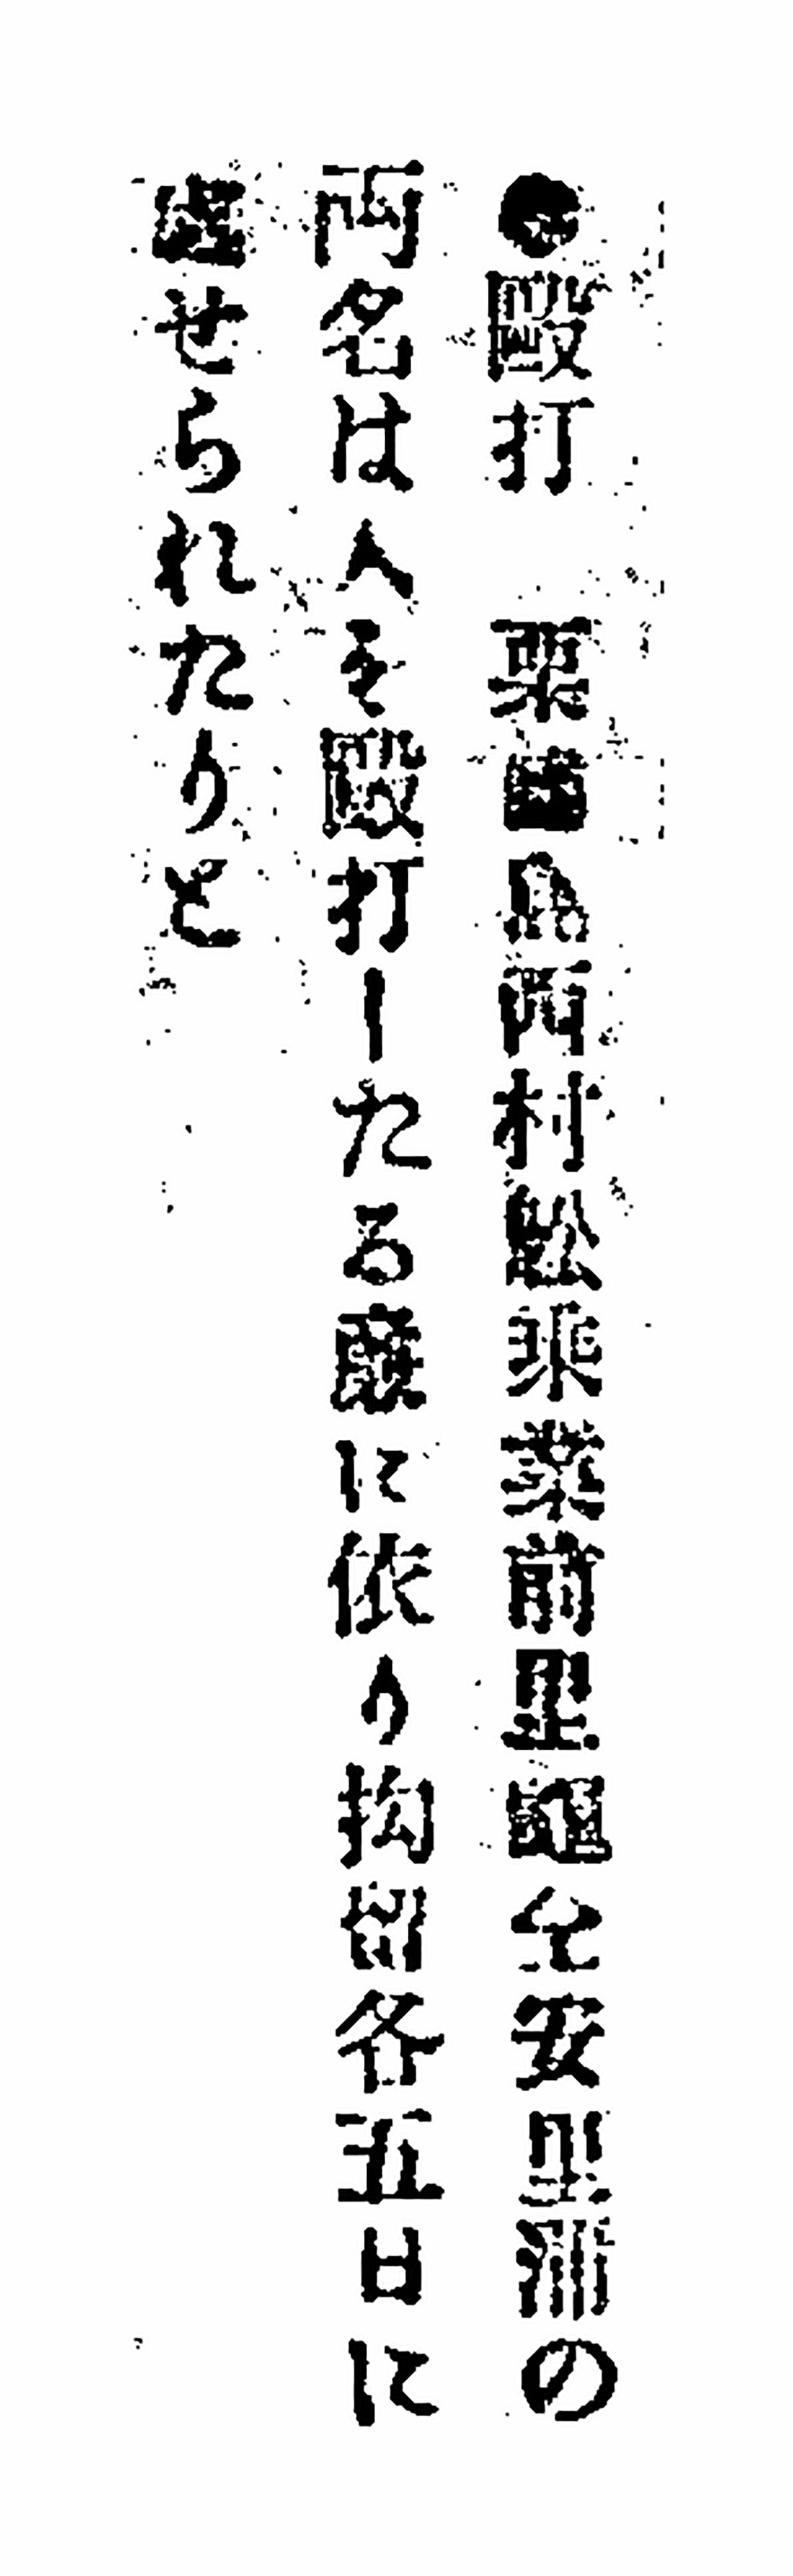 ●毆打 粟國島西村舩乘業前里龜仝安里浦の
両名は人を毆打したる廉に依り拘留各五日に
處せられたりと